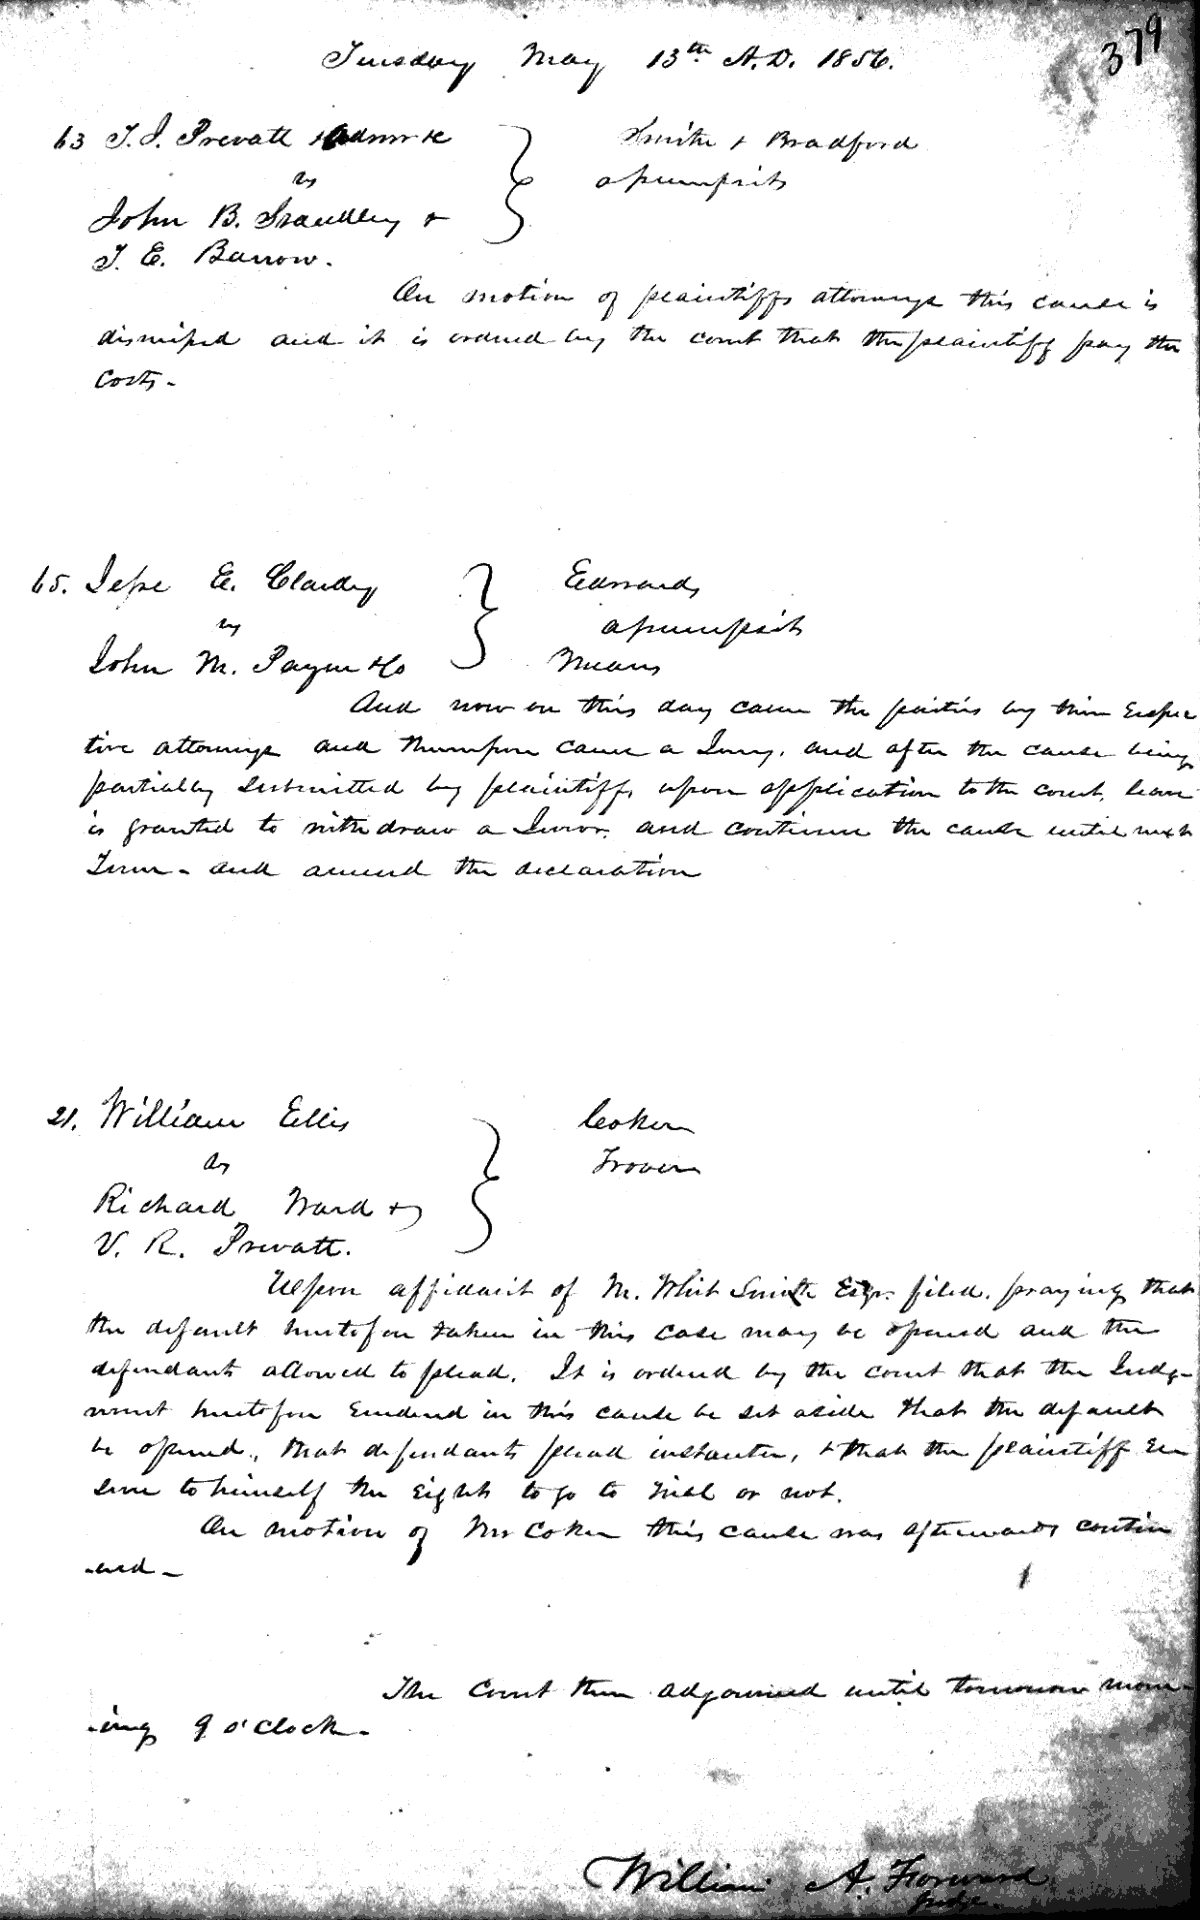 379
Tuesday May 13th A.D. 1856.
63 T. I. Prevatt & Admr &c
vs
John B. Standley &
T. E. Barrow.
Smith & Bradford
assumpsit
On motion of plaintiffs attorneys this cause is
dismissed and it is ordered by the court that the plaintiff pay the
costs -
65. Jesse E. Clardy
vs
John M. Payne & Co
Edwards
assumpsit
Means
And now on this day came the parties by their respec
tive attorneys and thereupon came a Jury, and after the cause being
partially submitted by plaintiffs, upon application to the court, leave
is granted to withdraw a Juror, and continue the cause until next
Term - and amend the declaration
21. William Ellis
vs
Richard Ward &
V. R. Prevatt.
Coker
Trover
Upon affidavit of M. Whit Smith Esqr. filed, praying that
the default heretofore taken in this case may be opened and the
defendants allowed to plead. It is ordered by the court that the Judg-
ment heretofore rendered in this cause be set aside that the default
be opened, that defendants plead instanter, & that the plaintiff re
serve to himself the right to go to trial or not.
On motion of Mr Coker this cause was afterwards contin
-ued -
The Court then adjourned until tomorrow morn-
-ing 9 o'clock -
William A. Forward
Judge